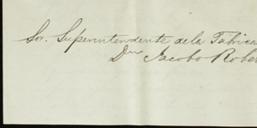 Sor. Superintendente de la Fabrica
Dn Jacobo Rober